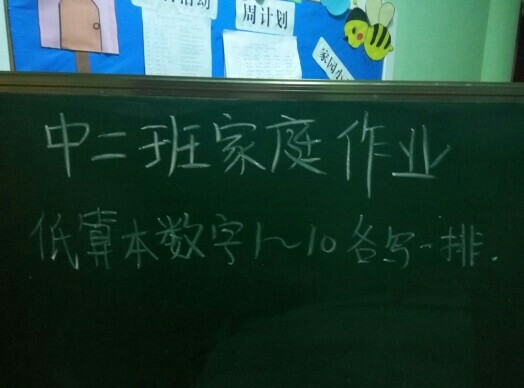 活动
周计划
家园小
中二班家庭作业
低算本数字1~10各写一排.